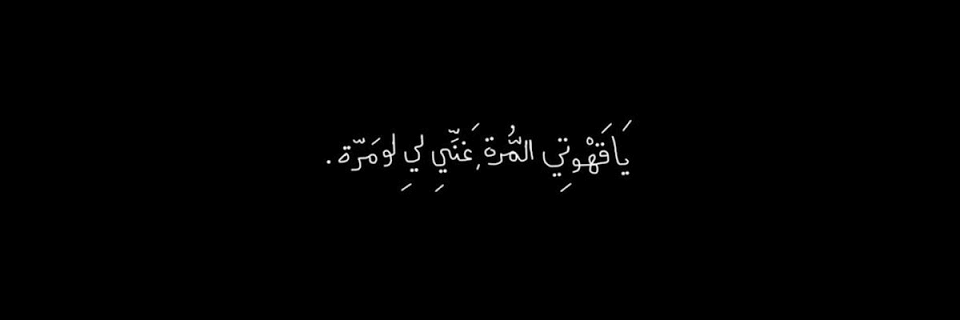 يَا قَهْوتِي المُّرة, غَنِّي لي لو مَرّة.